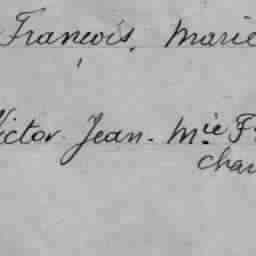 François. Marie
Victor. Jean. Mie F
Cha